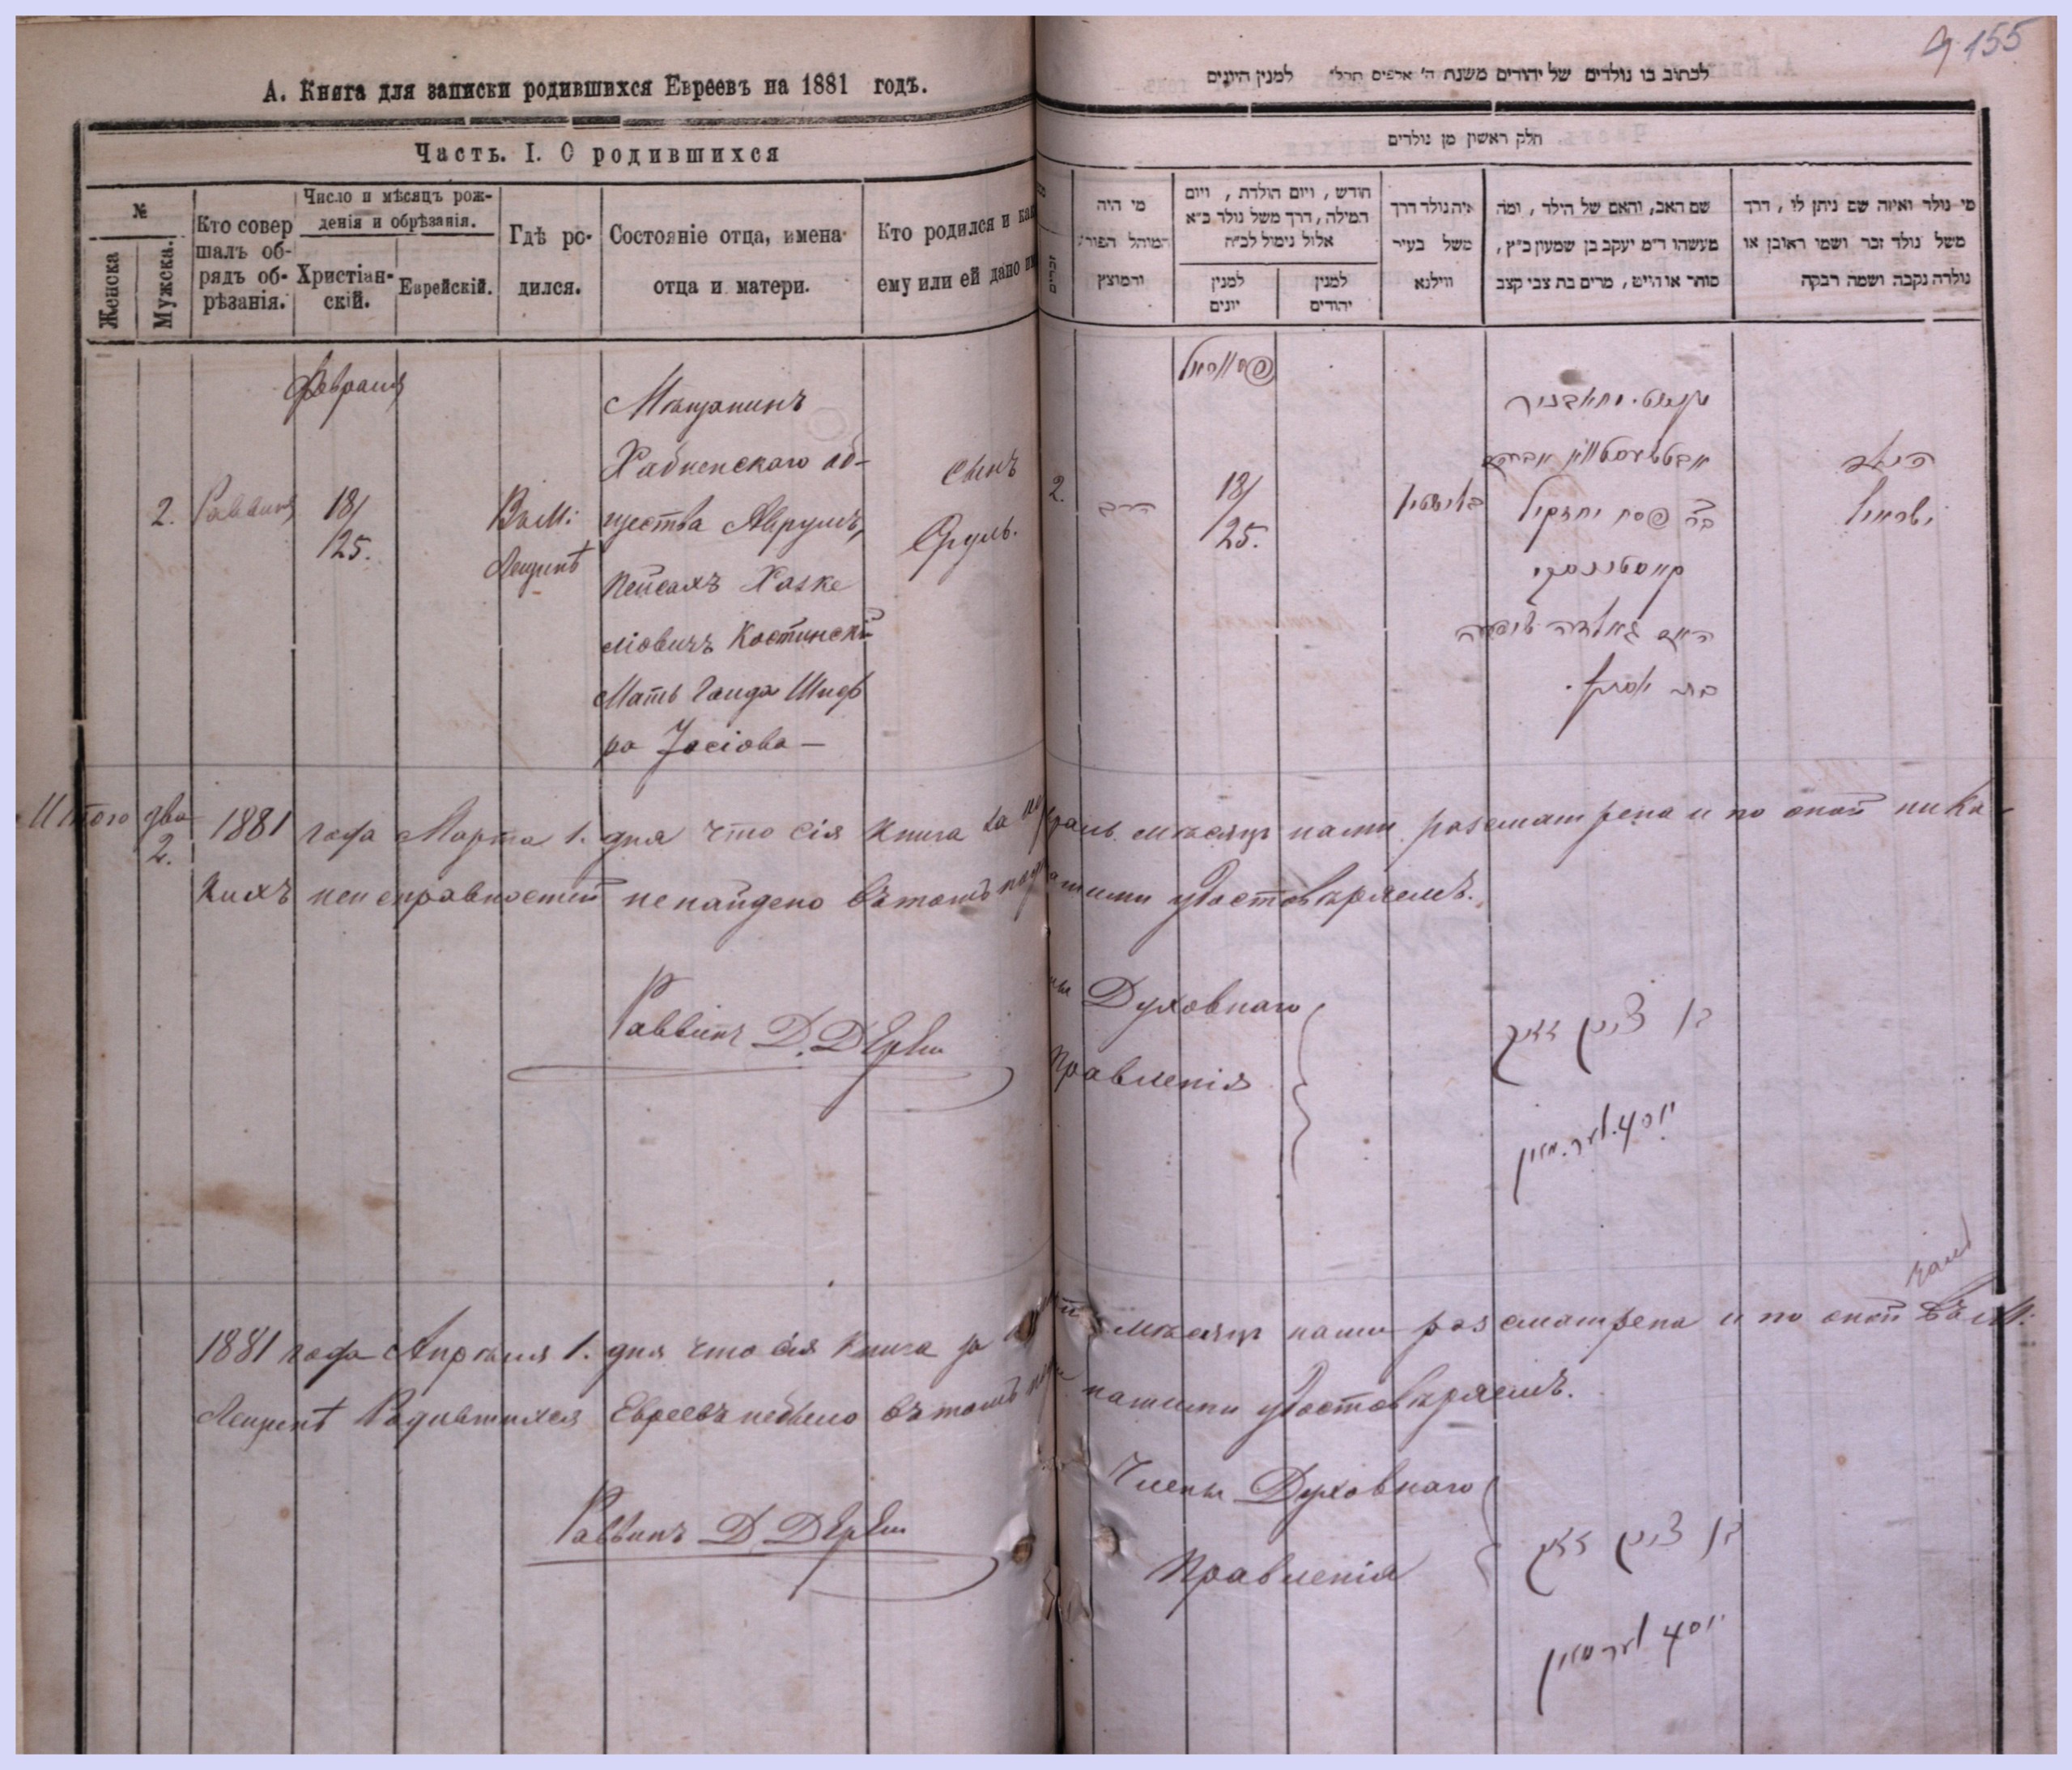 155
А. Книга для записки родившихся Евреевъ на 1881 годъ.
Часть. I. О родившихся
№
Женска
Мужска.
Кто совер
шалъ об-
рядъ об-
рѣзанія.
Число и мѣсяцъ рож-
денія и обрѣзанія.
Христіан-
скій.
Еврейскій.
Гдѣ ро-
дился.
Состояніе отца, имена
отца и матери.
Кто родился и как
ему или ей дано им
Февраля
2.
Раввинъ
18/
25.
Въ М:
Лещинѣ
Мѣщанинъ
Хабненскаго об-
щества Аврумъ,
Пейсахъ Хаске
ліовичъ Костинскій
Мать Гольда Шиф
ра Іосіова —
сынъ
Сруль.
Итого два
2.
לכתוב בו נולדים של יהודים משנת ה' אלפים תרל" למנין היונים
חלק ראשון מן נולדים
זכרים
מי היה
המוהל הפורע
והמוצץ
חודש, ויום הולדת, ויום
המילה, דרך משל נולד כ"א
אלול נימול לכ"ח
למנין
יונים
למנין
יהודים
איה נולד דרך
משל בעיר
ווילנא
שם האב, והאם של הילד, ומה
מעשהו ד"מ יעקב בן שמעון כ"ץ,
סוחר או חייט, מרים בת צבי קצב
מי נולד ואיזה שם ניתן לו, דרך
משל נולד זכר ושמו ראובן או
נולדה נקבה ושמה רבקה
2.
הרב
18/
25.
בר פסח יחזקיל
קאסטינסקי
האם גאלדה שיפרה
ישראיל
1881 года Марта 1. дня что сія книга за февраль мѣсяцъ нами разсматрена и по оной ника-
кихъ неисправностей ненайдено въ томъ подписами удостовѣряемъ.
Раввинъ Д.
Духовнаго
Правленія
בן ציון
יוסף
1881 года Апрѣля 1. дня что сія книга за мѣсяцъ нами разсматрена и по оной въ М:
Лещинѣ Родившихся Евреевъ небыло въ томъ нашими удостовѣряемъ.
Раввинъ Д.
Члены Духовнаго
Правленія
בן ציון
יוסף